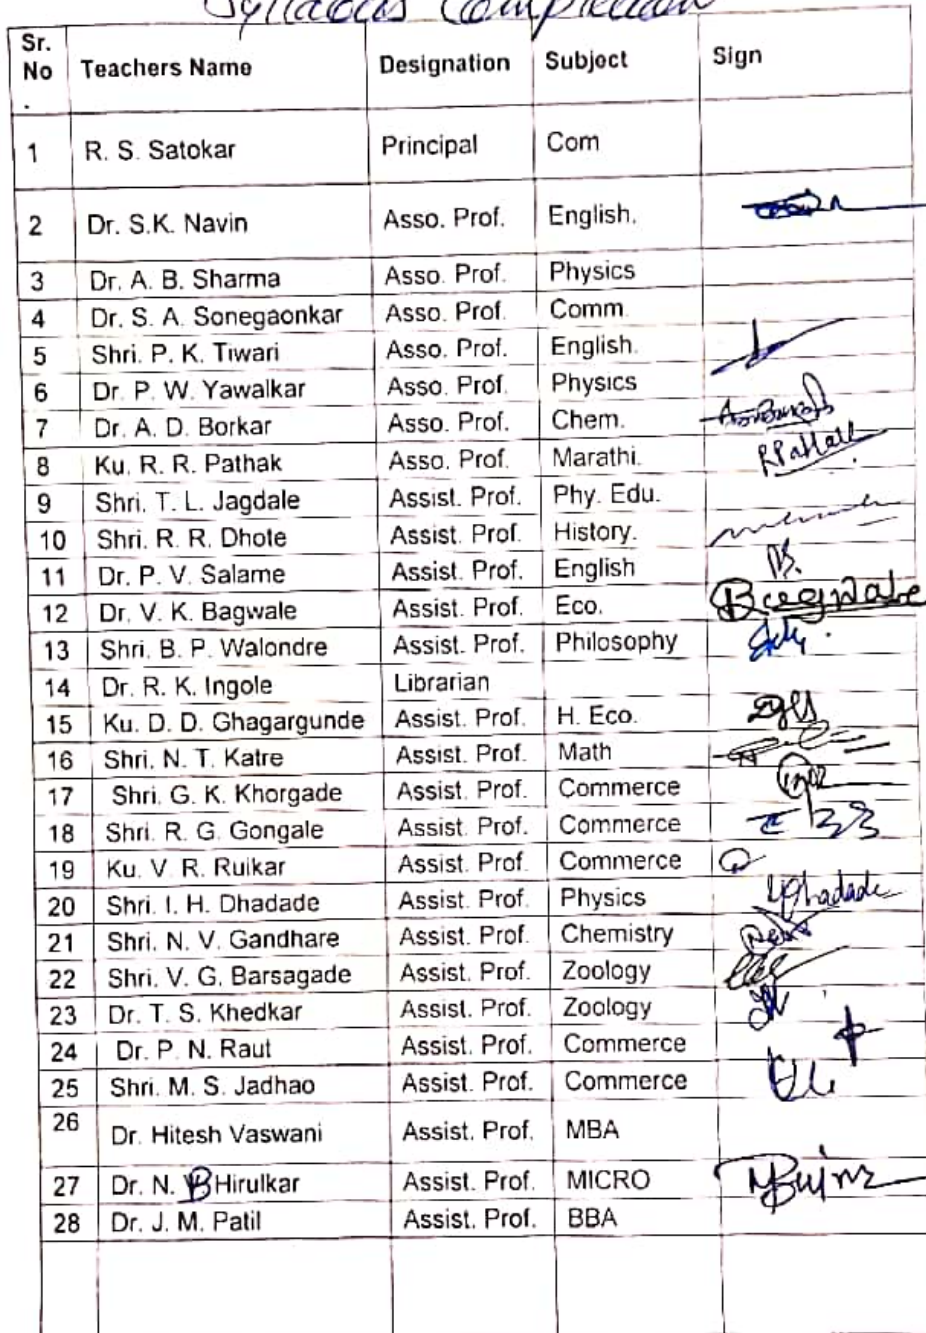 Syllabus Completion
Sr. No . Teachers Name Designation Subject Sign
1 R. S. Satokar Principal Com
2 Dr. S.K. Navin Asso. Prof. English.
3 Dr. A. B. Sharma Asso. Prof. Physics
4 Dr. S. A. Sonegaonkar Asso. Prof. Comm.
5 Shri. P. K. Tiwari Asso. Prof. English.
6 Dr. P. W. Yawalkar Asso. Prof. Physics
7 Dr. A. D. Borkar Asso. Prof. Chem.
8 Ku. R. R. Pathak Asso. Prof. Marathi. RPathak
9 Shri. T. L. Jagdale Assist. Prof. Phy. Edu.
10 Shri. R. R. Dhote Assist. Prof. History.
11 Dr. P. V. Salame Assist. Prof. English
12 Dr. V. K. Bagwale Assist. Prof. Eco.
13 Shri. B. P. Walondre Assist. Prof. Philosophy
14 Dr. R. K. Ingole Librarian
15 Ku. D. D. Ghagargunde Assist. Prof. H. Eco.
16 Shri. N. T. Katre Assist. Prof. Math
17 Shri. G. K. Khorgade Assist. Prof. Commerce
18 Shri. R. G. Gongale Assist. Prof. Commerce
19 Ku. V. R. Ruikar Assist. Prof. Commerce
20 Shri. I. H. Dhadade Assist. Prof. Physics
21 Shri. N. V. Gandhare Assist. Prof. Chemistry
22 Shri. V. G. Barsagade Assist. Prof. Zoology
23 Dr. T. S. Khedkar Assist. Prof. Zoology
24 Dr. P. N. Raut Assist. Prof. Commerce
25 Shri. M. S. Jadhao Assist. Prof. Commerce
26 Dr. Hitesh Vaswani Assist. Prof. MBA
27 Dr. N. B Hirulkar Assist. Prof. MICRO
28 Dr. J. M. Patil Assist. Prof. BBA